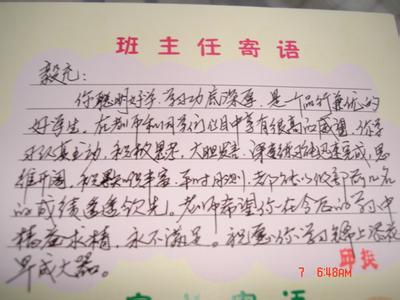 班主任寄语
你聪明好学,学习功底深厚,是一个品行兼优的
好学生,在老师和同学们心目中享有很高的威望,你学
习认真主动,积极思考,大胆发言,课堂练习迅速完成,思
维开阔,积累丰富,平时测,都能以前几名
的成绩遥遥领先。老师希望你在今后的学习中
精益求精,永不满足。祝愿你学习上添花
早成大器。
7 6:48AM
寄语